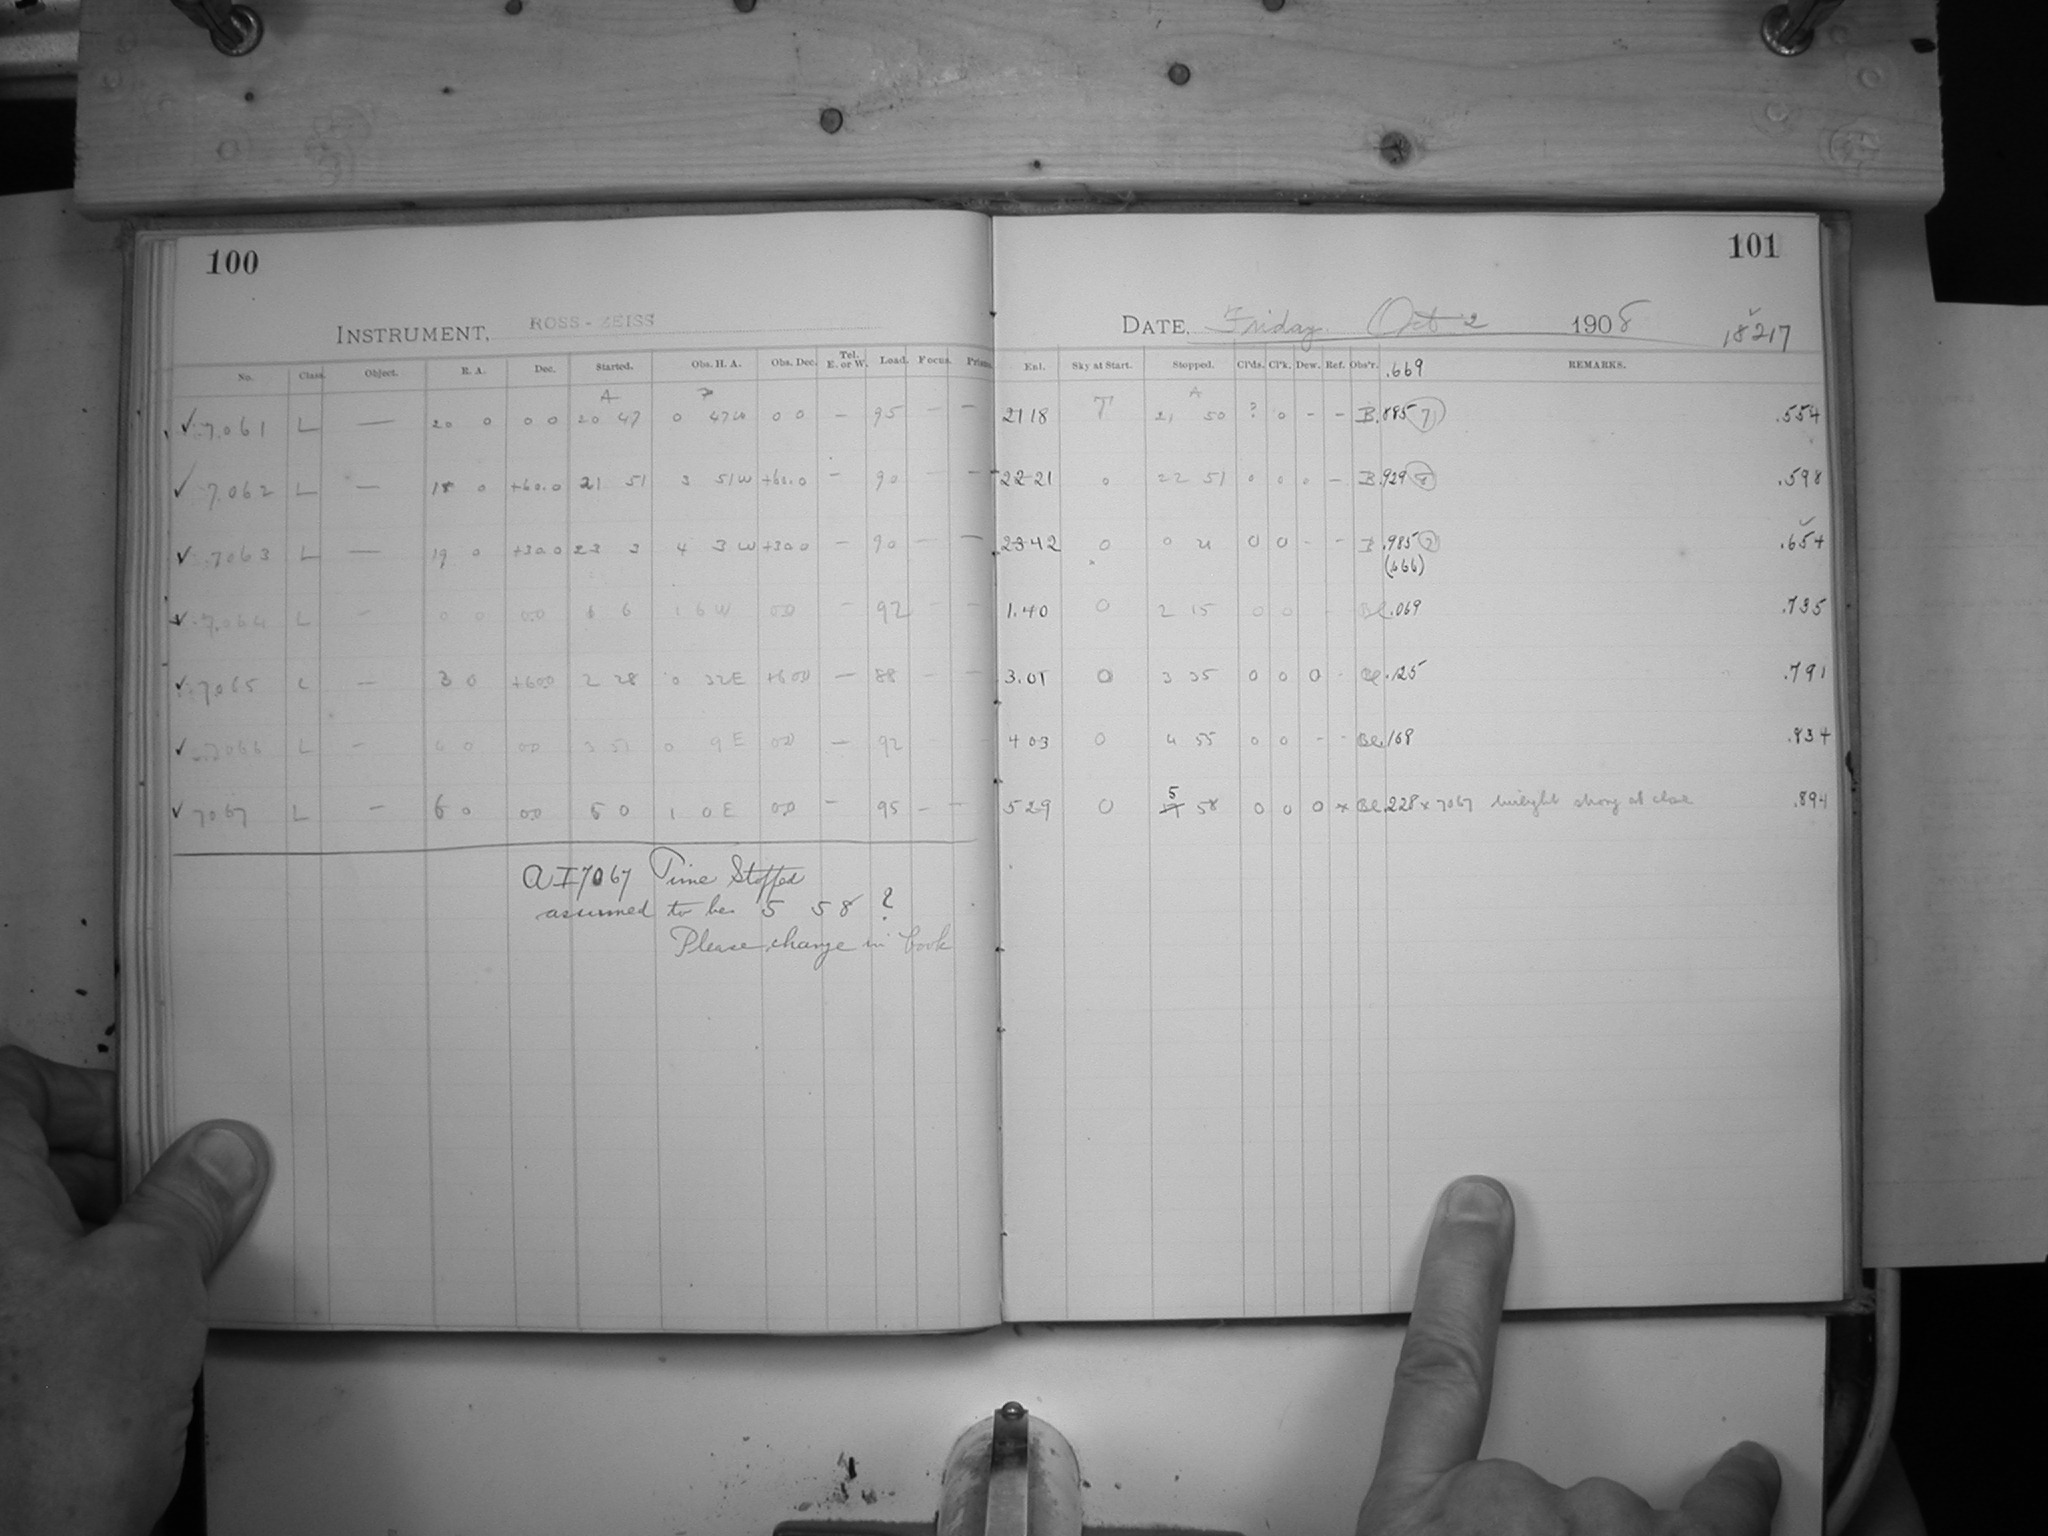 100
INSTRUMENT, ROSS-ZEISS
No. Class. Object. R. A. Dec. Started. Obs. H. A. Obs. Dec. Tel. E. or W. Load. Focus. Prism
✓ 7061 L — 20 0 0 0 20 47 0 47W 0 0 — 95 — —
✓ 7062 L — 18 0 +60.0 21 51 3 51W +60.0 — 90 — —
✓ 7063 L — 19 0 +30.0 23 3 4 3W +300 — 90 — —
✓ 7064 L — 0 0 00 1 6 1 6W 00 — 92 — —
✓ 7065 L — 3 0 +600 2 28 0 32E +600 — 88 — —
✓ 7066 L — 4 0 00 3 51 0 9E 00 — 92
✓ 7067 L — 6 0 00 5 0 1 0E 00 — 95 — —
AI7067 Time Stopped
assumed to be 5 58 ?
Please change in book
101
DATE, Friday Oct 2 1908
18217
Enl. Sky at Start. Stopped. Cl'ds. Cl'k. Dew. Ref. Obs'r. .669 REMARKS.
2118 T 21 50 ? 0 - - B .885 7 .554
2221 0 22 51 0 0 0 — B .929 8 .598
2342 0 0 21 0 0 - - B .985 .654
(.666)
1.40 0 2 15 0 0 - Bl .069 .735
3.01 0 3 35 0 0 0 - Bl .125 .791
4 03 0 4 55 0 0 - - Bl .168 .834
5 29 0 5 58 0 0 0 x Bl .228 x 7067 twilight strong at close .894